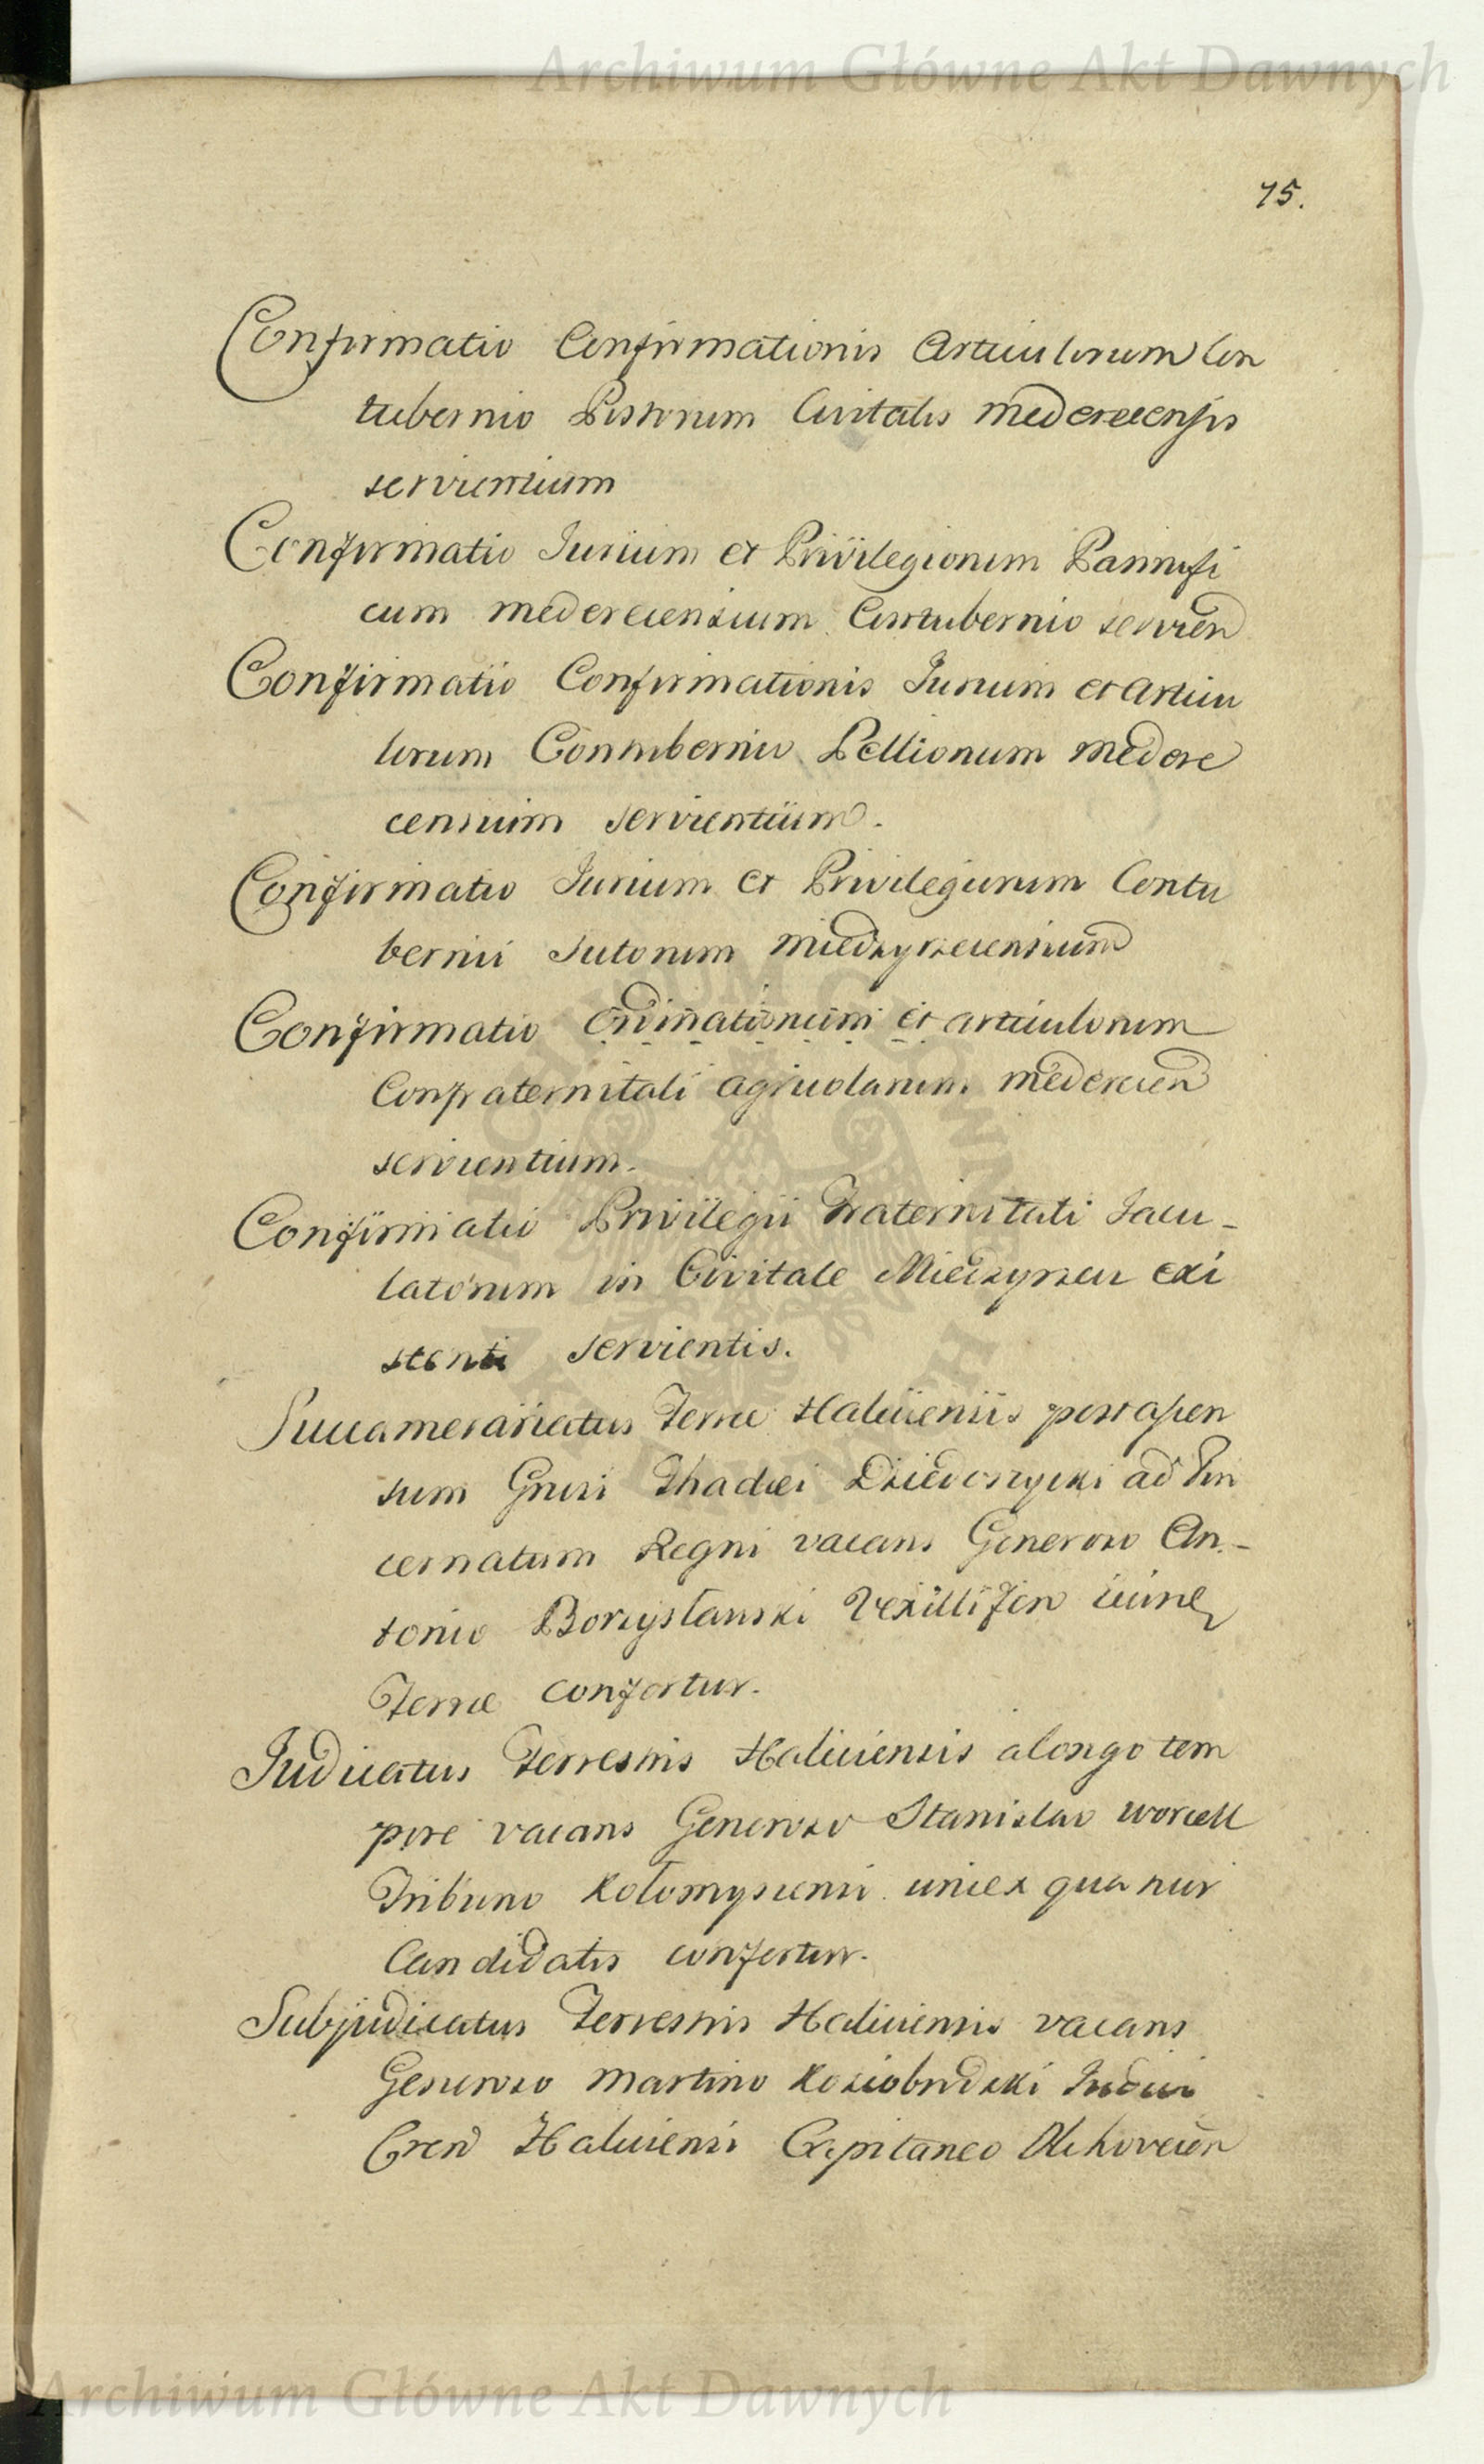 Archiwum Główne Akt Dawnych
75.
Confirmatio Confirmationis Articulorum Con
tubernio Pistorum Civitatis Medereecensis
servientium
Confirmatio Jurium et Privilegiorum Pannifi
cum Mederecensium Contubernio servien
Confirmatio Confirmationis Jurium et Articu
lorum Contubernio Pellionum Medere
censium servientium.
Confirmatio Jurium et Privilegiorum Contu
bernii Sutorum Miedzyrzecensium
Confirmatio Ordinationum et articulorum
Confraternitati agricolarum Mederecen
servientium.
Confirmatio Privilegii Fraternitati Jacu-
latorum in Civitate Miedzyrzecu exi
stenti servientis.
Succamerariatus Terrae Haliciensis post ascen
sum Gnrsi Thadaei Dzieduszycki ad Pin
cernatum Regni vacans Generoso An-
tonio Borzysławski Vexillifero
Terrae confertur.
Judicatus Terrestris Haliciensis a longo tem
pore vacans Generoso Stanislao Worcell
Tribuno Kołomysiensi uni ex quatuor
Candidatis confertur.
Subjudicatus Terrestris Haliciensis vacans
Generoso Martino Koziobrodzki Judici
Cren Haliciensi Capitaneo
Archiwum Główne Akt Dawnych